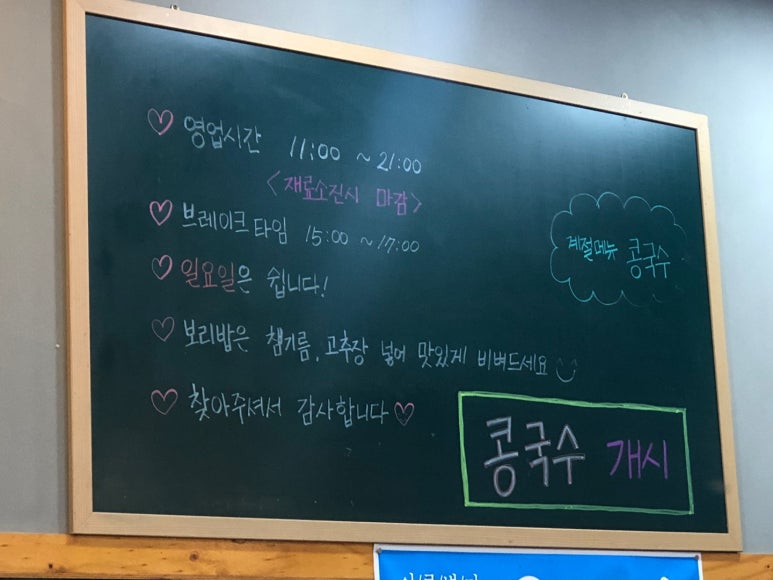 ♡ 영업시간 11:00 ~ 21:00
<재료소진시 마감>
♡ 브레이크타임 15:00 ~ 17:00
♡ 일요일은 쉽니다!
♡ 보리밥은 챔기름, 고추장 넣어 맛있게 비벼드세요
♡ 찾아주셔서 감사합니다♡
계절메뉴 콩국수
콩국수 개시